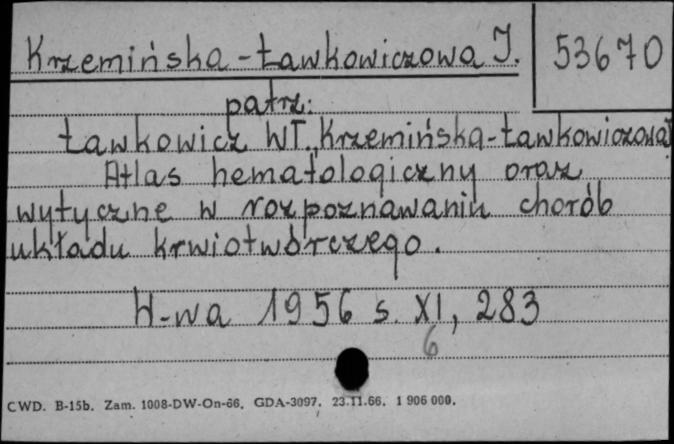 Krzemińska-Ławkowiczowa J. 53670
patrz:
Ławkowicz Wł., Krzemińska-Ławkowiczowa J
Atlas hematologiczny oraz
wytyczne w rozpoznawaniu chorób
układu krwiotwórczego.
W-wa 1956 s. XI, 283
6
CWD. B-15b. Zam. 1008-DW-On-66. GDA-3097. 23.11.66. 1 906 000.